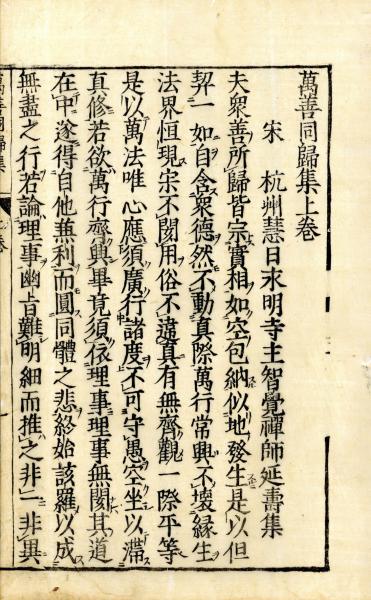 萬善同歸集上卷
宋 杭州慧日永明寺主智覺禪師延壽集
夫衆善所歸皆宗實相如空包納似地發生是以但
契一如自含衆德然不動真際萬行常興不壞緣生
法界恒現寂不閡用俗不違真有無齊觀一際平等
是以萬法唯心應須廣行諸度不可守愚空坐以滯
真修若欲萬行齊興畢竟須依理事理事無閡其道
在中遂得自他兼利而圓同體之悲終始該羅以成
無盡之行若論理事幽旨難明細而推之非一非異